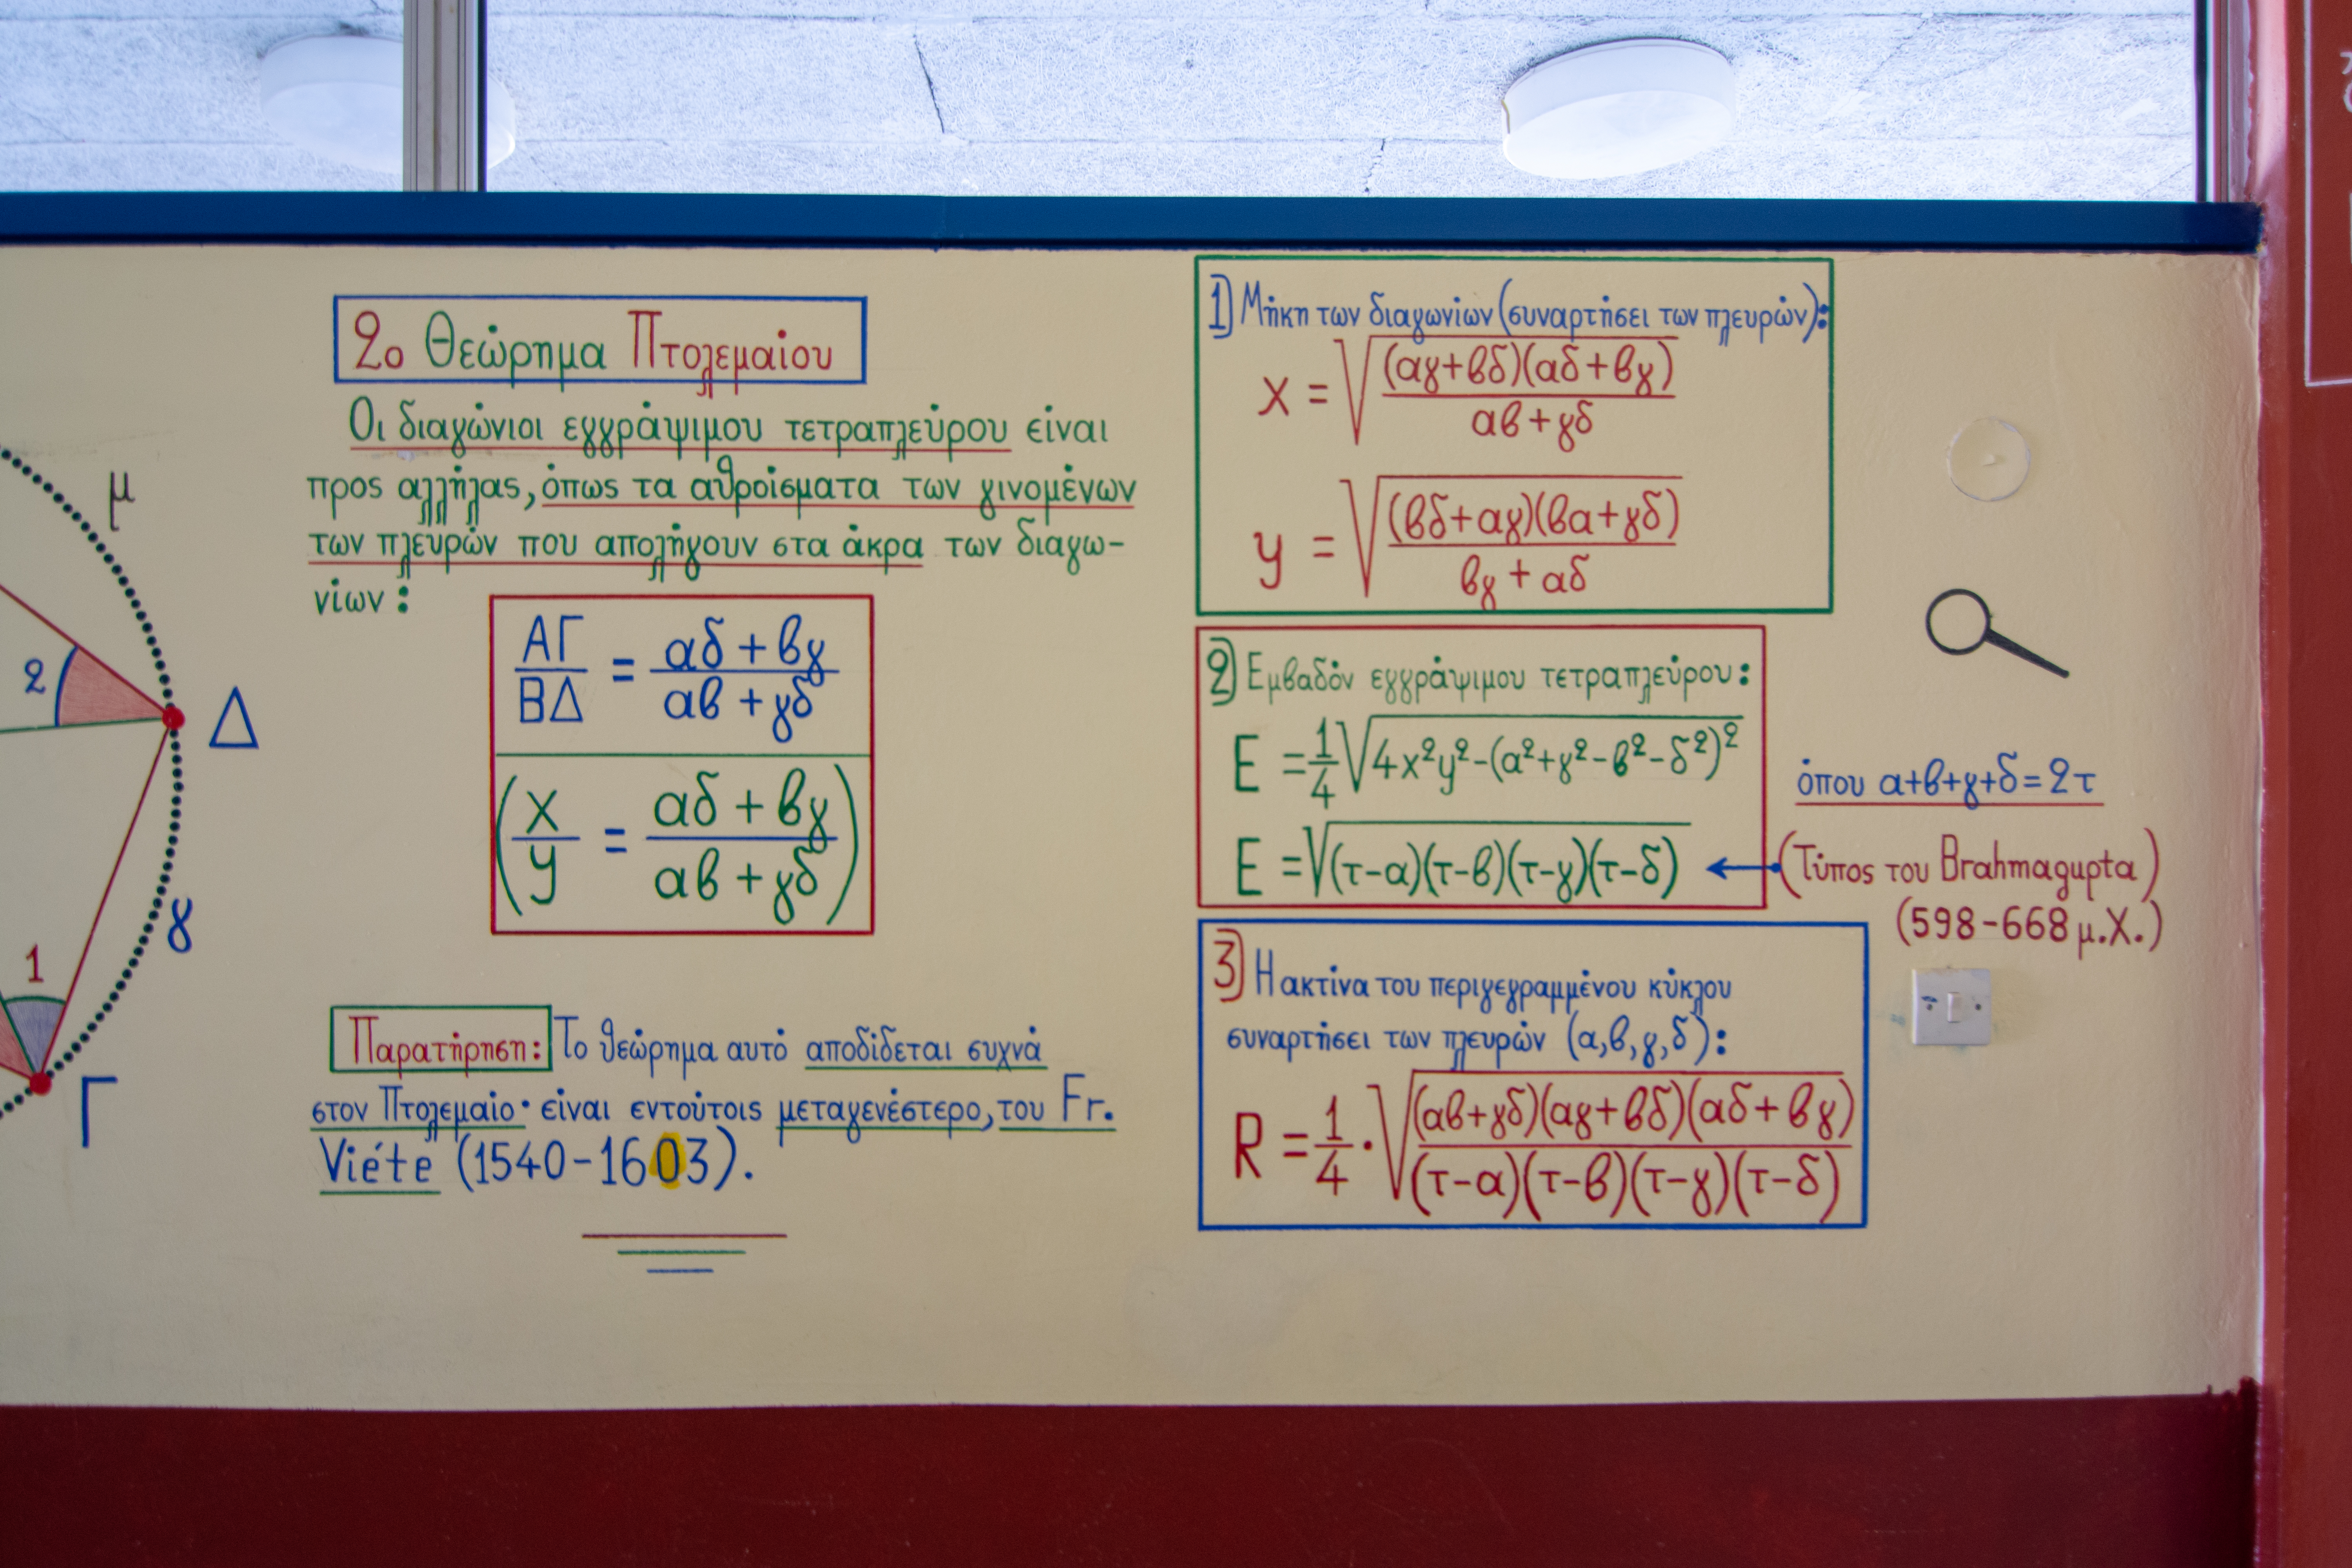 μ
2
Δ
γ
1
Γ
2ο Θεώρημα Πτολεμαίου
Οι διαγώνιοι εγγράψιμου τετραπλεύρου είναι
προς αλλήλας, όπως τα αθροίσματα των γινομένων
των πλευρών που απολήγουν στα άκρα των διαγω-
νίων:
ΑΓ/ΒΔ = (αδ + βγ)/(αβ + γδ)
(x/y = (αδ + βγ)/(αβ + γδ))
Παρατήρηση: Το θεώρημα αυτό αποδίδεται συχνά
στον Πτολεμαίο· είναι εντούτοις μεταγενέστερο, του Fr.
Viéte (1540-1603).
1) Μήκη των διαγωνίων (συναρτήσει των πλευρών):
x = √((αγ+βδ)(αδ+βγ)/(αβ+γδ))
y = √((βδ+αγ)(βα+γδ)/(βγ + αδ))
2) Εμβαδόν εγγράψιμου τετραπλεύρου:
E = 1/4 √(4x²y²-(α²+γ²-β²-δ²)²)
όπου α+β+γ+δ=2τ
E = √((τ-α)(τ-β)(τ-γ)(τ-δ))
(Τύπος του Brahmagupta)
(598-668 μ.Χ.)
3) Η ακτίνα του περιγεγραμμένου κύκλου
συναρτήσει των πλευρών (α,β,γ,δ):
R = 1/4 · √((αβ+γδ)(αγ+βδ)(αδ+βγ)/((τ-α)(τ-β)(τ-γ)(τ-δ)))